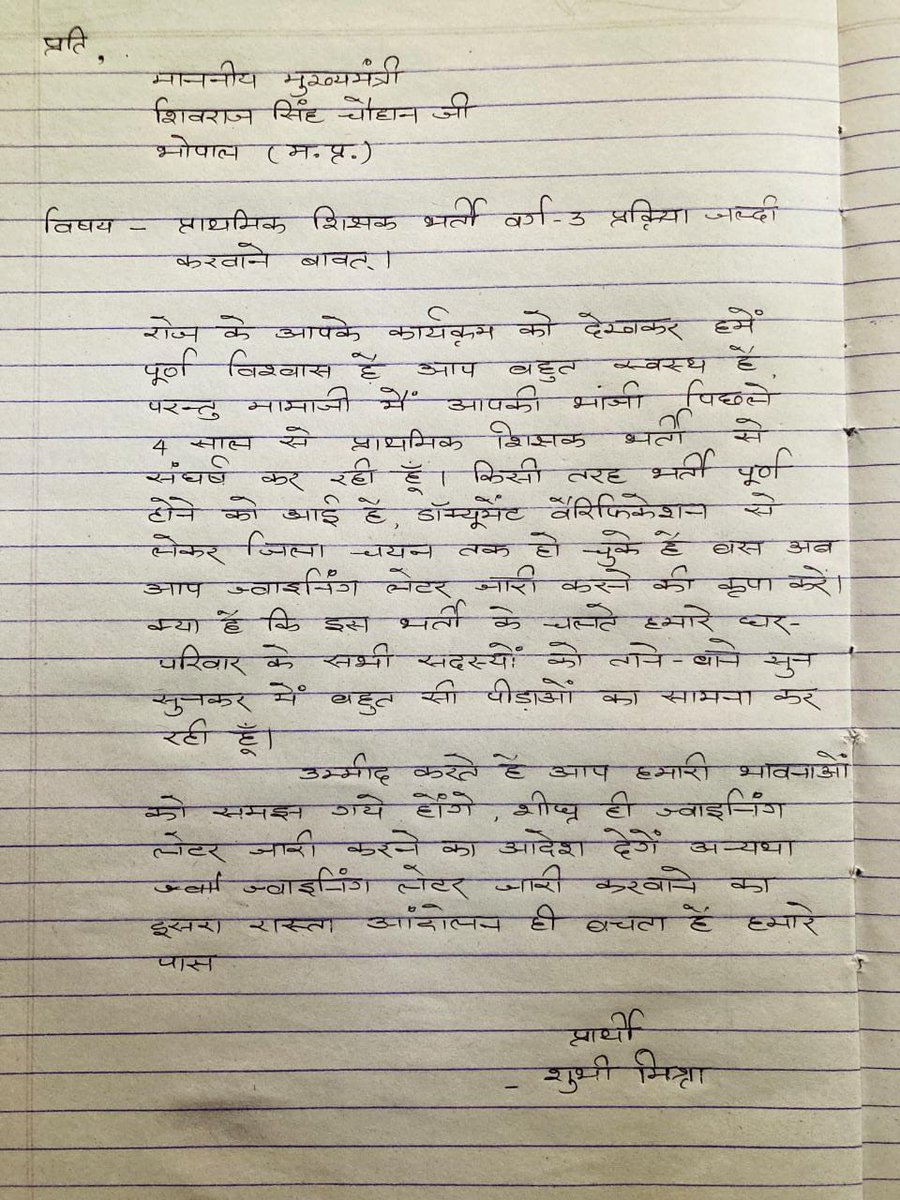 प्रति,
माननीय मुख्यमंत्री
शिवराज सिंह चौहान जी
भोपाल (म.प्र.)
विषय - प्राथमिक शिक्षक भर्ती वर्ग-3 प्रक्रिया जल्दी
करवाने बावत्।
रोज के आपके कार्यक्रम को देखकर हमें
पूर्ण विश्वास है आप बहुत स्वस्थ है,
परन्तु मामाजी मैं आपकी भांजी पिछले
4 साल से प्राथमिक शिक्षक भर्ती से
संघर्ष कर रही हूँ। किसी तरह भर्ती पूर्ण
होने को आई है, डॉक्यूमेंट वैरिफिकेशन से
लेकर जिला चयन तक हो चुके है बस अब
आप ज्वाइनिंग लेटर जारी करने की कृपा करें।
क्या है कि इस भर्ती के चलते हमारे घर-
परिवार के सभी सदस्यों को ताने-बाने सुन
सुनकर में बहुत सी पीड़ाओं का सामना कर
रही हूँ।
उम्मीद करते है आप हमारी भावनाओं
को समझ गये होंगे, शीघ्र ही ज्वाइनिंग
लेटर जारी करने का आदेश देगें अन्यथा
ज्वाइनिंग लेटर जारी करवाने का
दूसरा रास्ता आंदोलन ही बचता है हमारे
पास
प्रार्थी
- शुभी मिश्रा